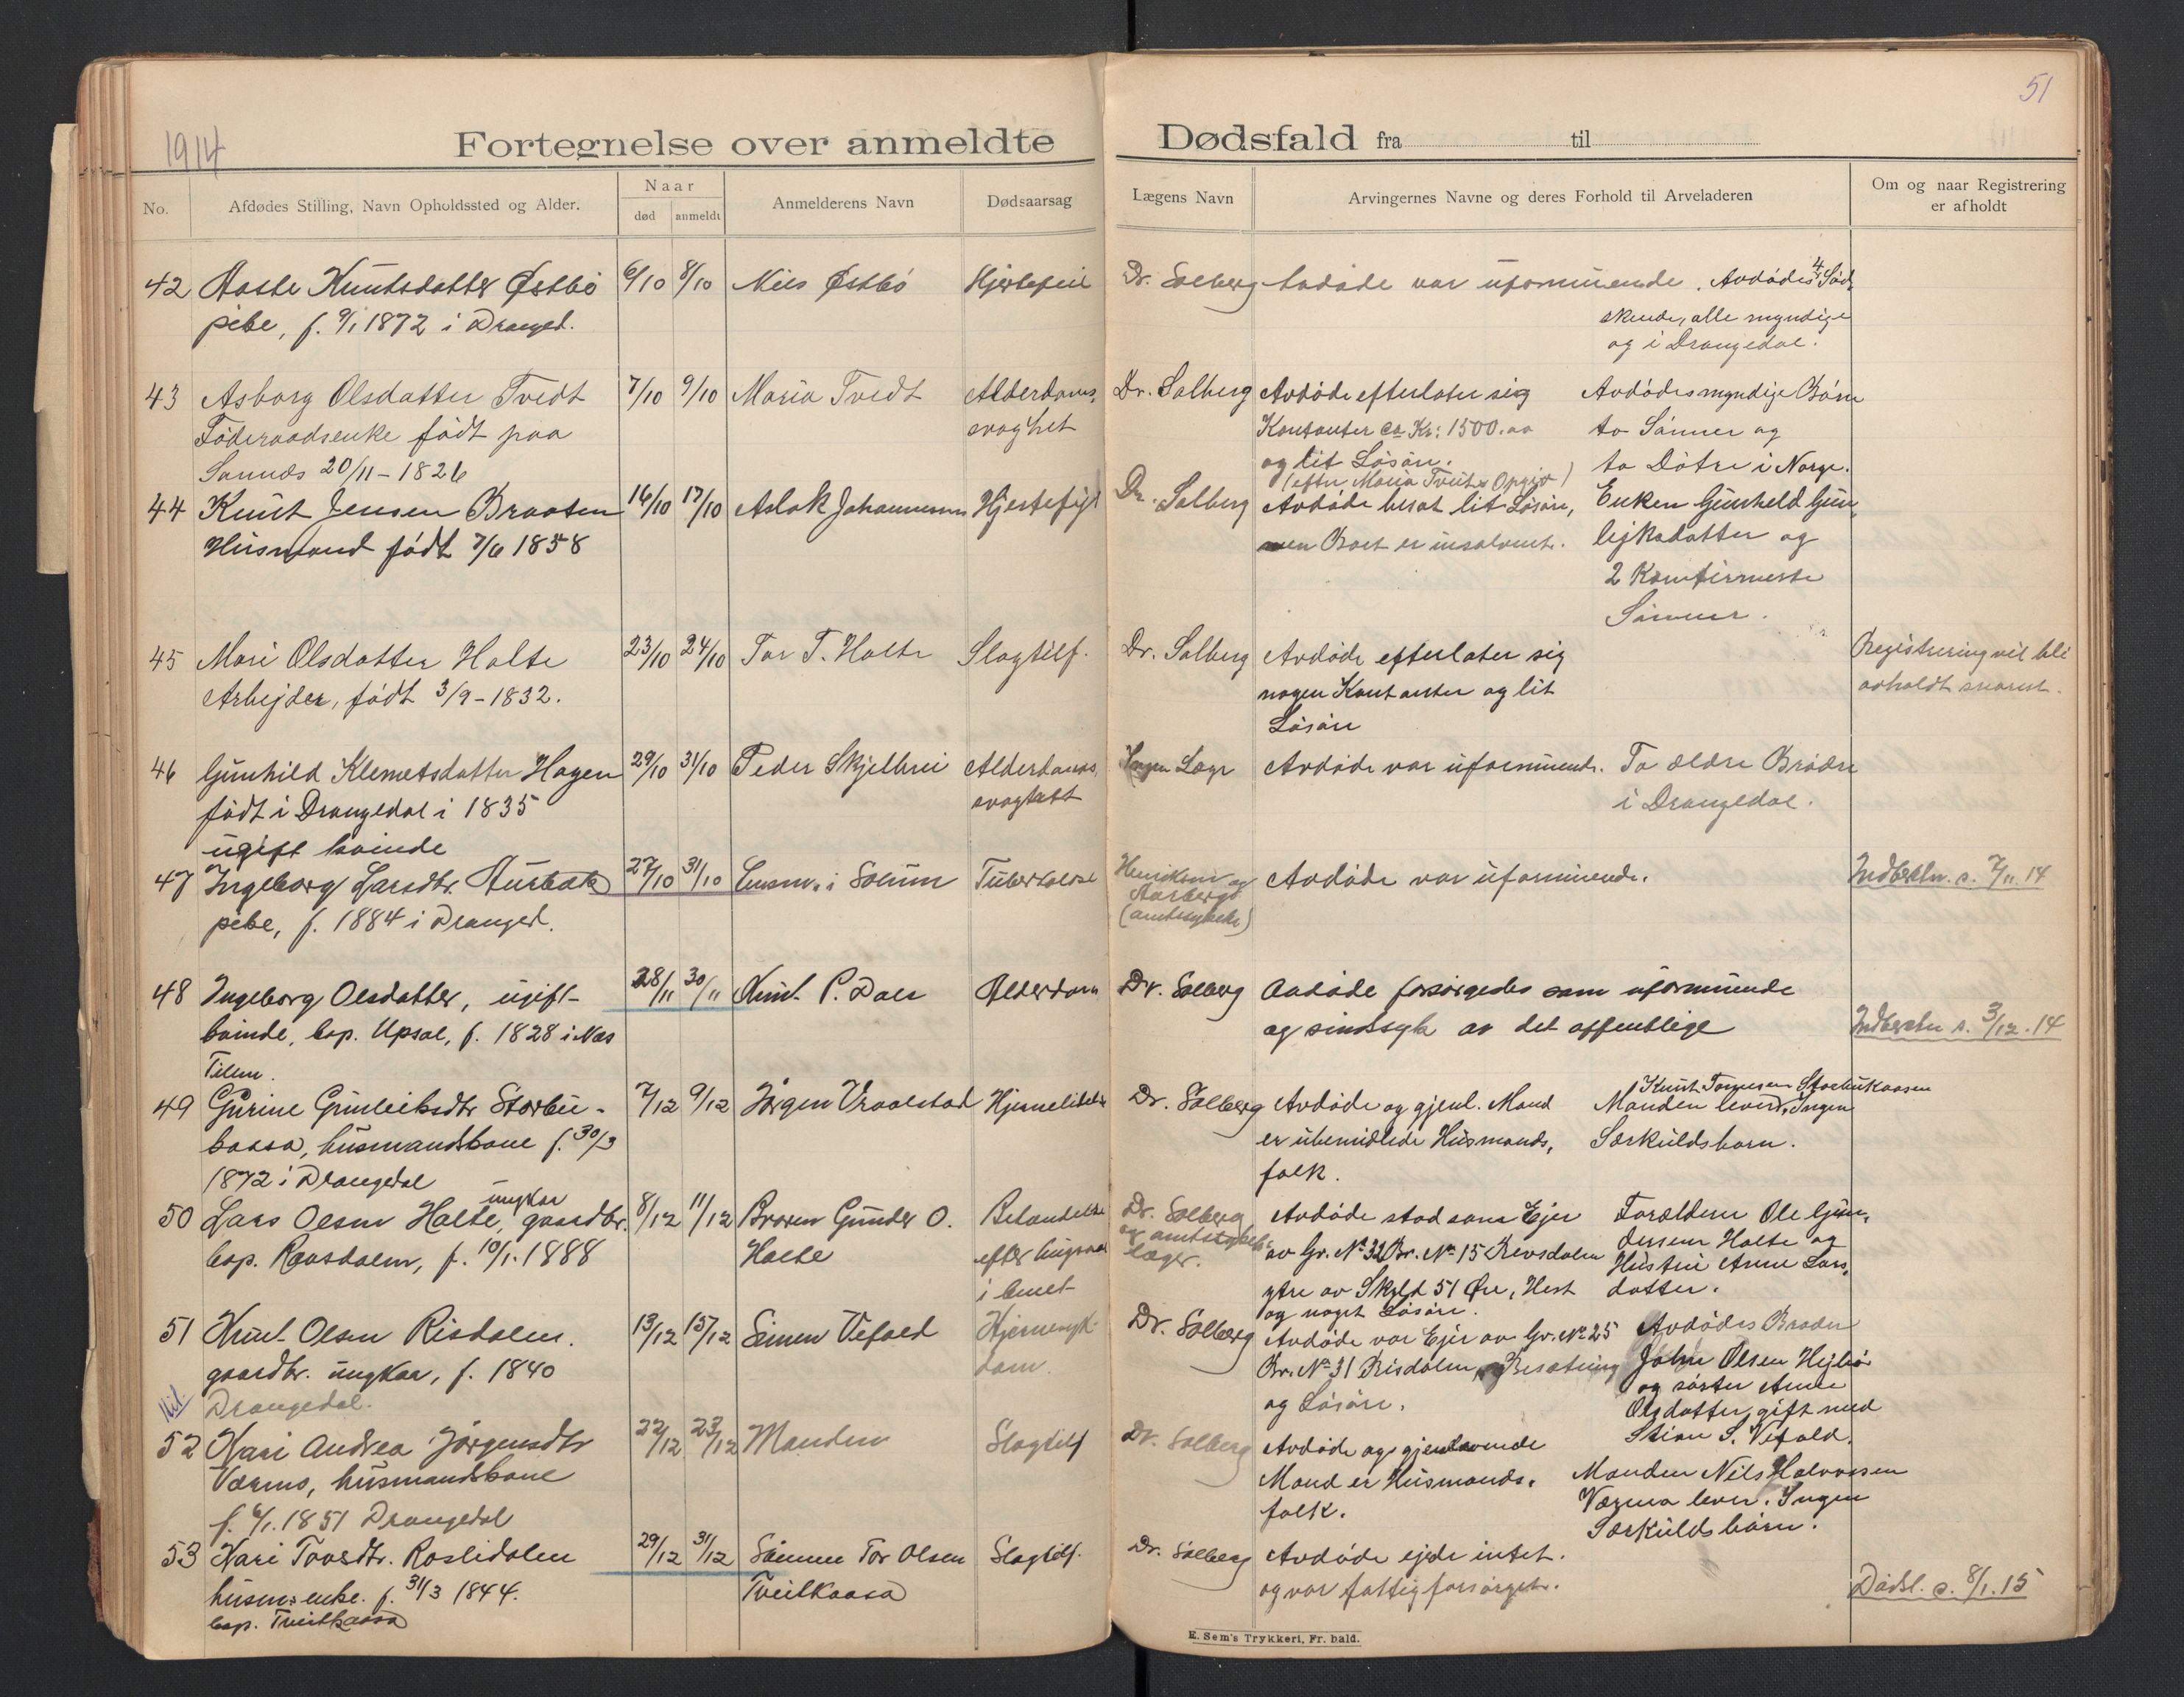 1914
51
Fortegnelse over anmeldte Dødsfald fra til
No.
Afdødes Stilling, Navn Opholdssted og Alder.
Naar
død anmeldt
Anmelderens Navn
Dødsaarsag
Lægens Navn
Arvingernes Navne og deres Forhold til Arveladeren
Om og naar Registrering
er afholdt
42 Aaste Knutsdatter Østbö 6/10 8/10 Nils Østbö Hjertefeil Dr. Solberg Avdöde var uformuende. Avdödes 4 Söd
pike, f. 9/1 1872 i Dranged. skende, alle myndige
og i Drangedal.
43 Asborg Olsdatter Tvedt 7/10 9/10 Maria Tvedt Alderdoms, Dr. Solberg Avdöde efterlater sig Avdödes myndige Börn
Föderaadsenke födt paa svaghet Kontanter ca Kr: 1500.00 to Sönner og
Sannes 20/11-1826 og lit Lösöre. to Dötre i Norge.
(efter Maria Tveits Opgjör)
44 Knut Jensen Braaten 16/10 17/10 Aslak Johannesen Hjertefejl Dr. Solberg Avdöde besat lit Lösöre, Enken Gunheld Gun,
Husmand födt 7/6 1858 men Boet er insolvent. lejksdatter og
2 Konfirmerte
Sönner.
45 Mari Olsdatter Holte 23/10 24/10 Tor T. Holte Slagtilf. Dr. Solberg Avdöde efterlater sig Registrering vil bli
Arbejder, födt 3/9-1832. nogen Kontanter og lit avholdt snarest.
Lösöre
46 Gunhild Klemetsdatter Hagen 29/10 31/10 Peder Skjelbrei Alderdoms, Ingen Læge Avdöde var uformuende. To ældre Brödre
födt i Drangedal i 1835 svaghet i Drangedal.
ugift kvinde
47 Ingeborg Larsdtr. 27/10 31/10 Lensm. i Solum Tuberkulose Henriksen og Avdöde var uformuende. Indberetn. s. 7/11.14
pike, f. 1884 i Dranged. Aarberg
(amtssykeh)
48 Ingeborg Olsdatter, ugift 28/11 30/11 Knut P. Dale Alderdom Dr. Solberg Avdöde forsörgedes som uformuende
kvinde, bop. Upsal, f. 1828 i Næs og sindssyk av det offentlige Indberetn s. 3/12.14
Tillm.
49 Gurine Gunleiksdtr Storbu- 7/12 9/12 Jörgen Vraalstad Hjernelidelse Dr. Solberg Avdöde og gjenl. Mand Knut Storbukaasen
kaasa, husmandskone f. 30/3 er ubemidlede Husmands, Manden lever. Ingen
1872 i Drangedal folk. Særkuldsbarn.
50 Lars Olsen Holte, ungkar gaardbr. 8/12 11/12 Broren Gunder O. Dr. Solberg Avdöde stod som Ejer Forældrene Ole Gun,
bop. Raasdalen, f. 10/1.1888 Holte efter og amtssykeh. av Gr. No 32 Br. No 15 dersen Holte og
i læger. ytre av Skyld 51 Öre, Hest Hustru Anne Lars,
og noget Lösöre. datter.
51 Knut Olsen Risdalen. 13/12 15/12 Simen Vefald Hjernesyk- Dr. Solberg Avdöde var Ejer av Gr. No 25 Avdödes Broder
gaardbr. ungkar, f. 1840 dom. Br. No 31 Risdalen, Besætning John Olsen Hejbö
Drangedal. og Lösöre. og söster Anne
Olsdatter, gift med
S. Vefald.
52 Kari Andrea Jörgensdtr 22/12 23/12 Manden Slagtilf Dr. Solberg Avdöde og gjenlevende Manden Nils Halvorsen
Værmo, husmandskone Mand er Husmands, lever. Ingen
f. 6/1.1851 Drangedal folk. Særkuldsbörn.
53 Kari Toresdtr. Roslidalen 29/12 31/12 Sönnen Tor Olsen Slagtilf. Dr. Solberg Avdöde ejede intet.
husm.enke. f. 31/3 1844. Tveitkaasa og var fattigforsörget. Dödsl. s. 8/1.15
bop. Tveitkaasa
E. Sem's Trykkeri, Fr. hald.